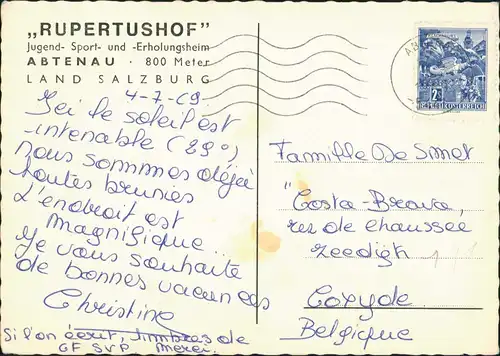 „RUPERTUSHOF"
Jugend- Sport- und -Erholungsheim
ABTENAU · 800 Meter
LAND SALZBURG
4-7-69.
Ici le soleil est
intenable (29°)
nous sommes déjà
toutes brunies
L'endroit est
magnifique.
Je vous souhaite
de bonnes vacances
Christine
Si l'on écrit, timbres de
GF SVP merci.
Famille De Smet
"Costa-Brava,
rez de chaussee
zeedijk
Coxyde.
Belgique
REPUBLIK ÖSTERREICH